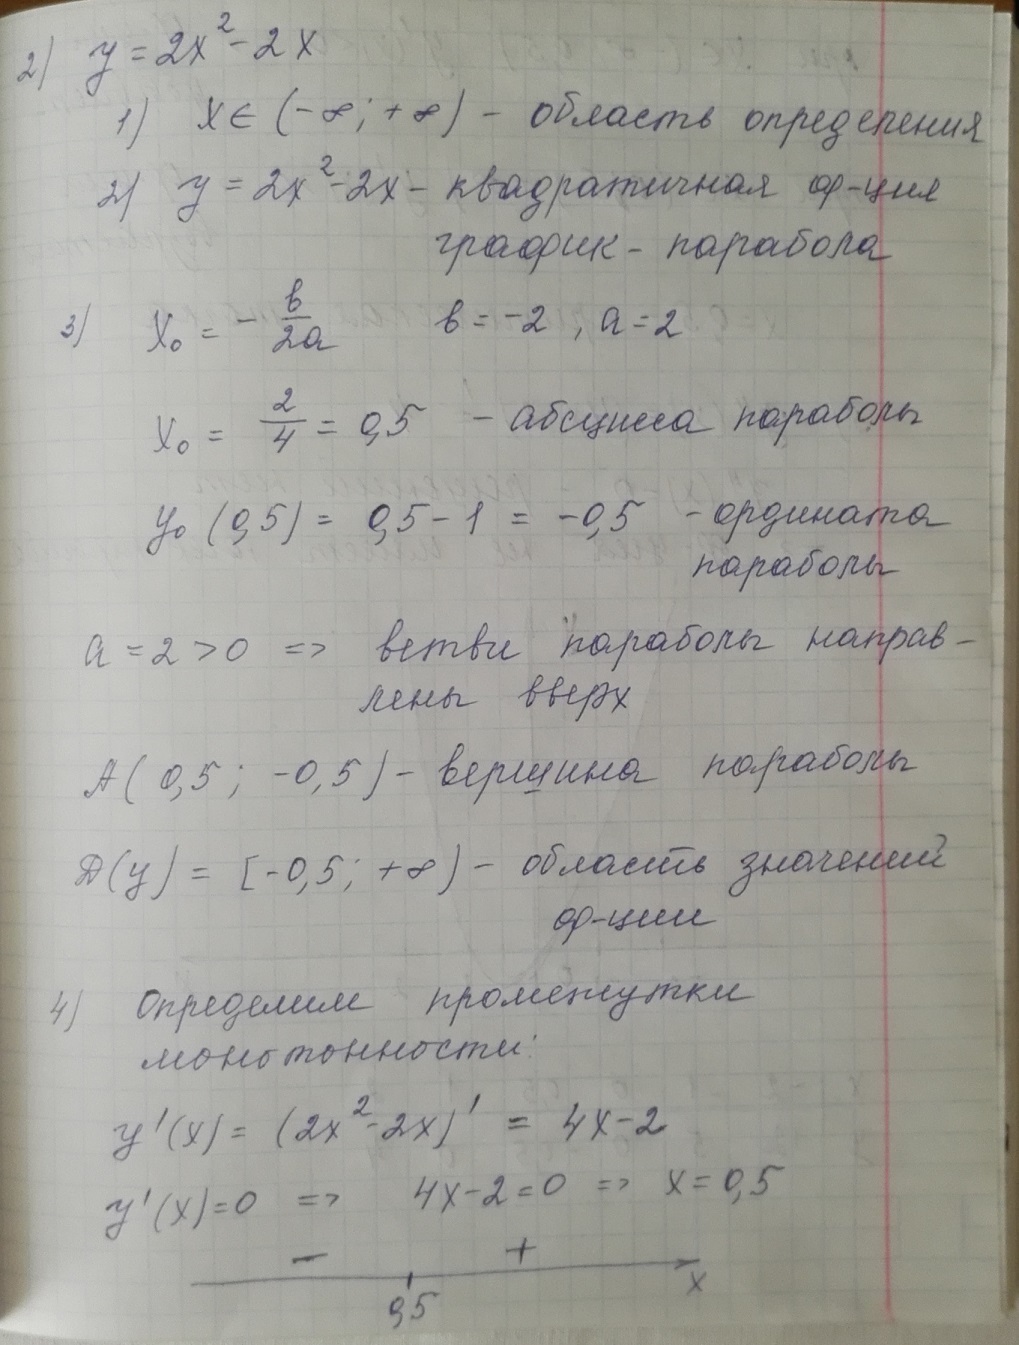 2) y = 2x² - 2x
1) x ∈ (-∞; +∞) - область определения
2) y = 2x² - 2x - квадратичная ф-ция
график - парабола
3) x₀ = - в/2а в = -2, а = 2
x₀ = 2/4 = 0,5 - абсцисса параболы
y₀ (0,5) = 0,5 - 1 = -0,5 - ордината
параболы
а = 2 > 0 => ветви параболы направ-
лены вверх
А(0,5; -0,5) - вершина параболы
D(y) = [-0,5; +∞) - область значений
ф-ции
4) Определим промежутки
монотонности:
y'(x) = (2x² - 2x)' = 4x - 2
y'(x) = 0 => 4x - 2 = 0 => x = 0,5
- +
0,5 x